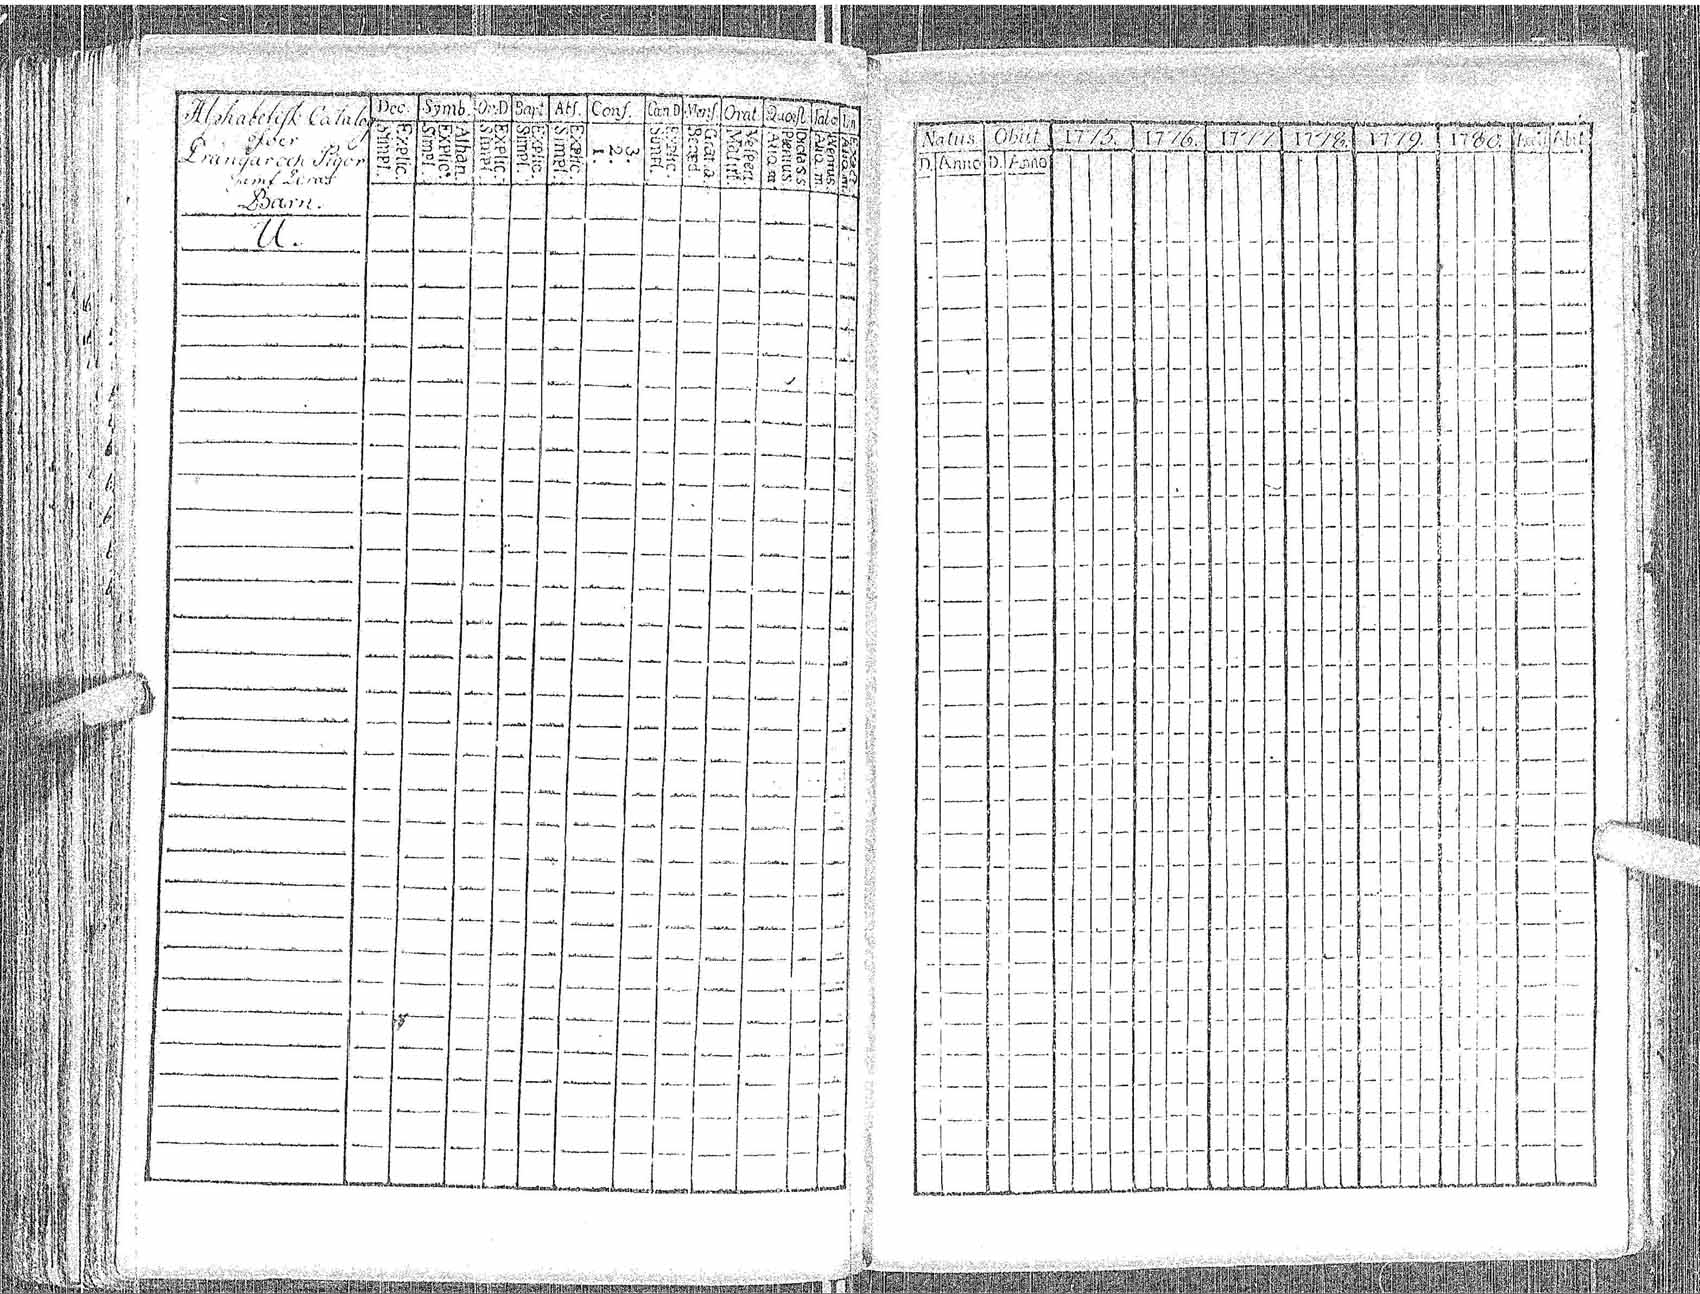 Alphabetisk Catalog
öfver
Drängar och Pigor
samt deras
Barn.
U.
Dec. Symb. Or.D Bapt Abs. Conf. Cæn D Mens Orat Quæst Tab œ
Explic. Simpl. Athan. Explic. Simpl. Explic. Simpl. Explic. Simpl. Explic. Simpl. 3. 2. 1. Explic. Simpl. Grat. a. Bened. Vesper. Matut. Dict. s s
Natus Obiit 1775. 1776. 1777. 1778. 1779. 1780. Abit
D. Anno D. Anno